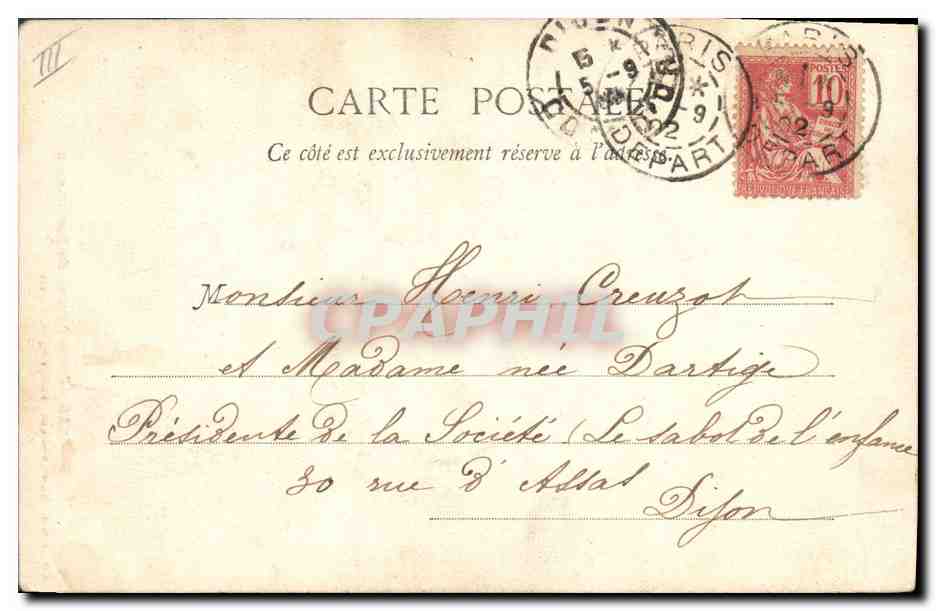 III
CARTE POSTALE
Ce côté est exclusivement réservé à l'adresse.
DIJON
5 -9
CÔTE D'OR
PARIS
-9
02
DEPART
PARIS
9
02
DEPART
POSTES
10
REPUBLIQUE FRANÇAISE
Monsieur Henri Creuzot
CPAPHIL
et Madame née Dartige
Présidente de la Société (Le sabot de l'enfance
30 rue d'Assas
Dijon